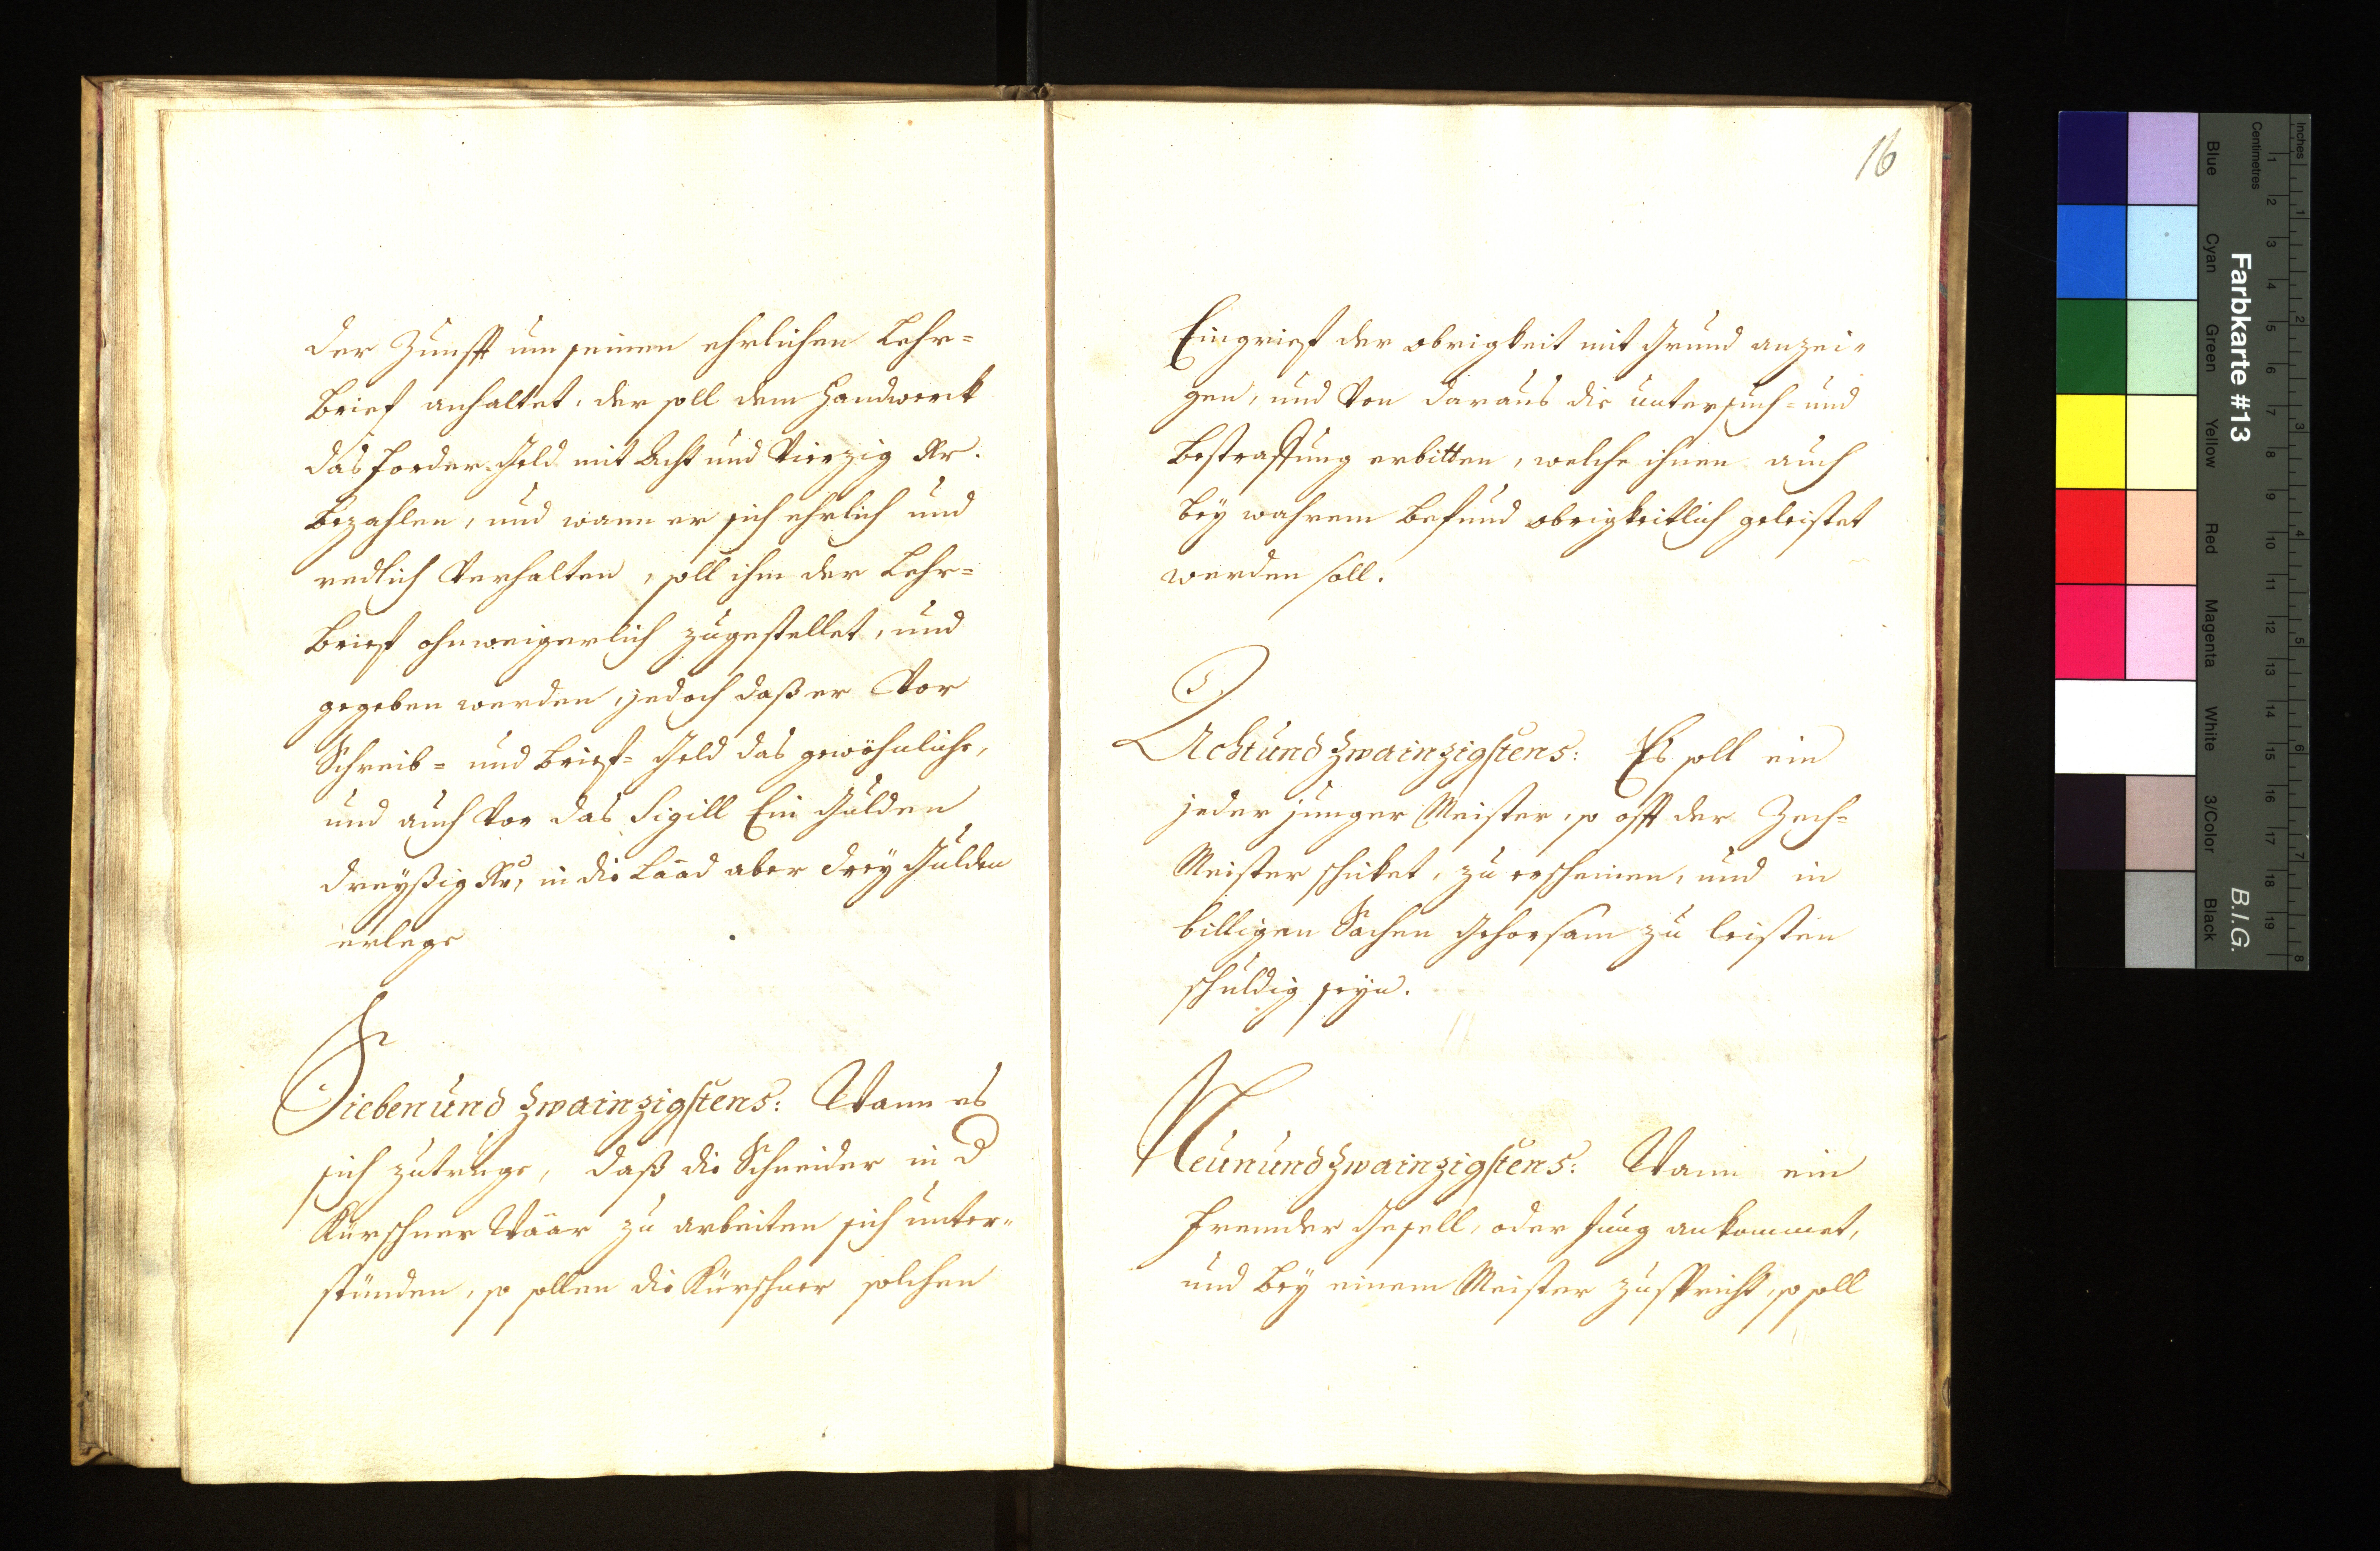 der Zunfft um seinen ehrlichen Lehr=
Brief anhaltet, der soll dem Handwerck
das forder Geld mit Acht und Vierzig Kr.
Bezahlen, und wann er sich ehrlich und
redlich Verhalten, soll ihm der Lehr=
Brieff ohnweigerlich zugestellet, und
gegeben werden, jedoch daß er Vor
Schreib= und Brieff= Geld das gewöhnliche,
und auch Vor das Sigill Ein Gulden
dreyßig Kr, in die Laad aber drey Gulden
erlege
Siebenundzwainzigstens: Wann es
sich zutruge, daß die Schneider in d
Kürschner Waar zu arbeiten sich unter=
stünden, so sollen die Kürschner solchen
16
Eingrieff der obrigkeit mit Grund anzei=
gen, und Von daraus die untersuch= und
Bestraffung erbitten, welche ihnen auch
bey wahrem Befund obrigkeitlich geleistet
werden soll.
Achtundzwainzigstens: Es soll ein
jeder junger Meister, so offt der Zech=
Meister schicket, zu erscheinen, und in
billigen Sachen Gehorsam zu leisten
schuldig seyn.
Neunundzwainzigstens: Wann ein
fremder Gesell, oder Jung ankommet,
und bey einem Meister zuspricht, so soll
Farbkarte #13
B.I.G.
Inches
Centimetres
1 2 3 4 5 6 7 8 9 10 11 12 13 14 15 16 17 18 19
1 2 3 4 5 6 7 8
Blue
Cyan
Green
Yellow
Red
Magenta
White
3/Color
Black